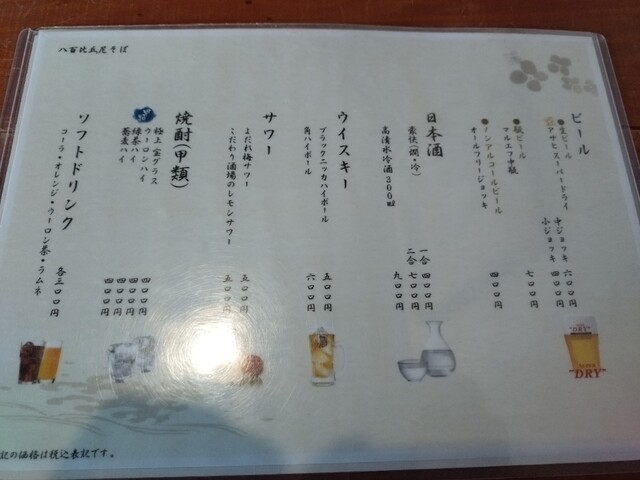 八百比丘尼そば
ビール
●生ビール
アサヒスーパードライ
中ジョッキ 六〇〇円
小ジョッキ 四〇〇円
●瓶ビール
マルエフ中瓶 七〇〇円
●ノンアルコールビール
オールフリージョッキ 四〇〇円
日本酒
豪快(燗・冷)
一合 四〇〇円
二合 七〇〇円
高清水冷酒300ml 九〇〇円
ウイスキー
ブラックニッカハイボール 五〇〇円
角ハイボール 六〇〇円
サワー
よだれ梅サワー 五〇〇円
こだわり酒場のレモンサワー 五〇〇円
焼酎(甲類)
極上宝グラス 四〇〇円
ウーロンハイ 四〇〇円
緑茶ハイ 四〇〇円
蕎麦ハイ 四〇〇円
ソフトドリンク
コーラ・オレンジ・ウーロン茶・ラムネ 各三〇〇円
"DRY"
SUPER
"DRY"
記の価格は税込表記です。